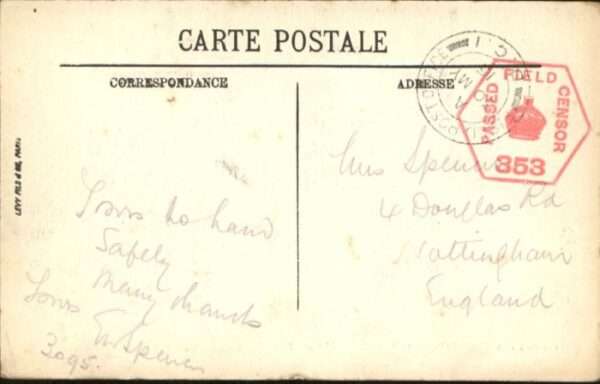 CARTE POSTALE
CORRESPONDANCE
ADRESSE
PASSED FIELD CENSOR
353
LEVY FILS & CIE, PARIS
Yours to hand
Safely
Many thanks
Yours
3095.
4 Douglas Rd
Nottingham
England